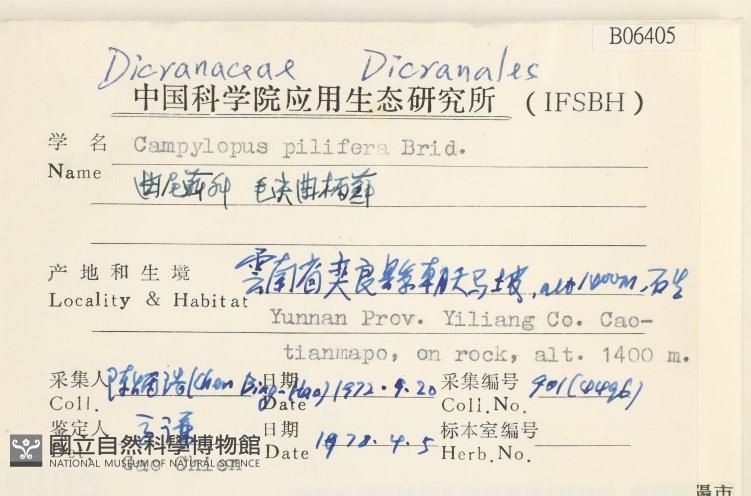 B06405
Dicranaceae Dicranales
中国科学院应用生态研究所 (IFSBH)
学名 Campylopus pilifera Brid.
Name
曲尾藓科 毛尖曲柄藓
产地和生境 雲南省奕良县朝天马坡, alt 1400m, 石生
Locality & Habitat Yunnan Prov. Yiliang Co. Cao-
tianmapo, on rock, alt. 1400 m.
采集人 陈炳浩(Chen Bing-Hao) 日期 1972.9.20 采集编号 901(4496)
Coll. Date Coll.No.
鉴定人 高谦 日期 1978.4.5 标本室编号
Det. Gao Chien Date Herb.No.
國立自然科學博物館
NATIONAL MUSEUM OF NATURAL SCIENCE